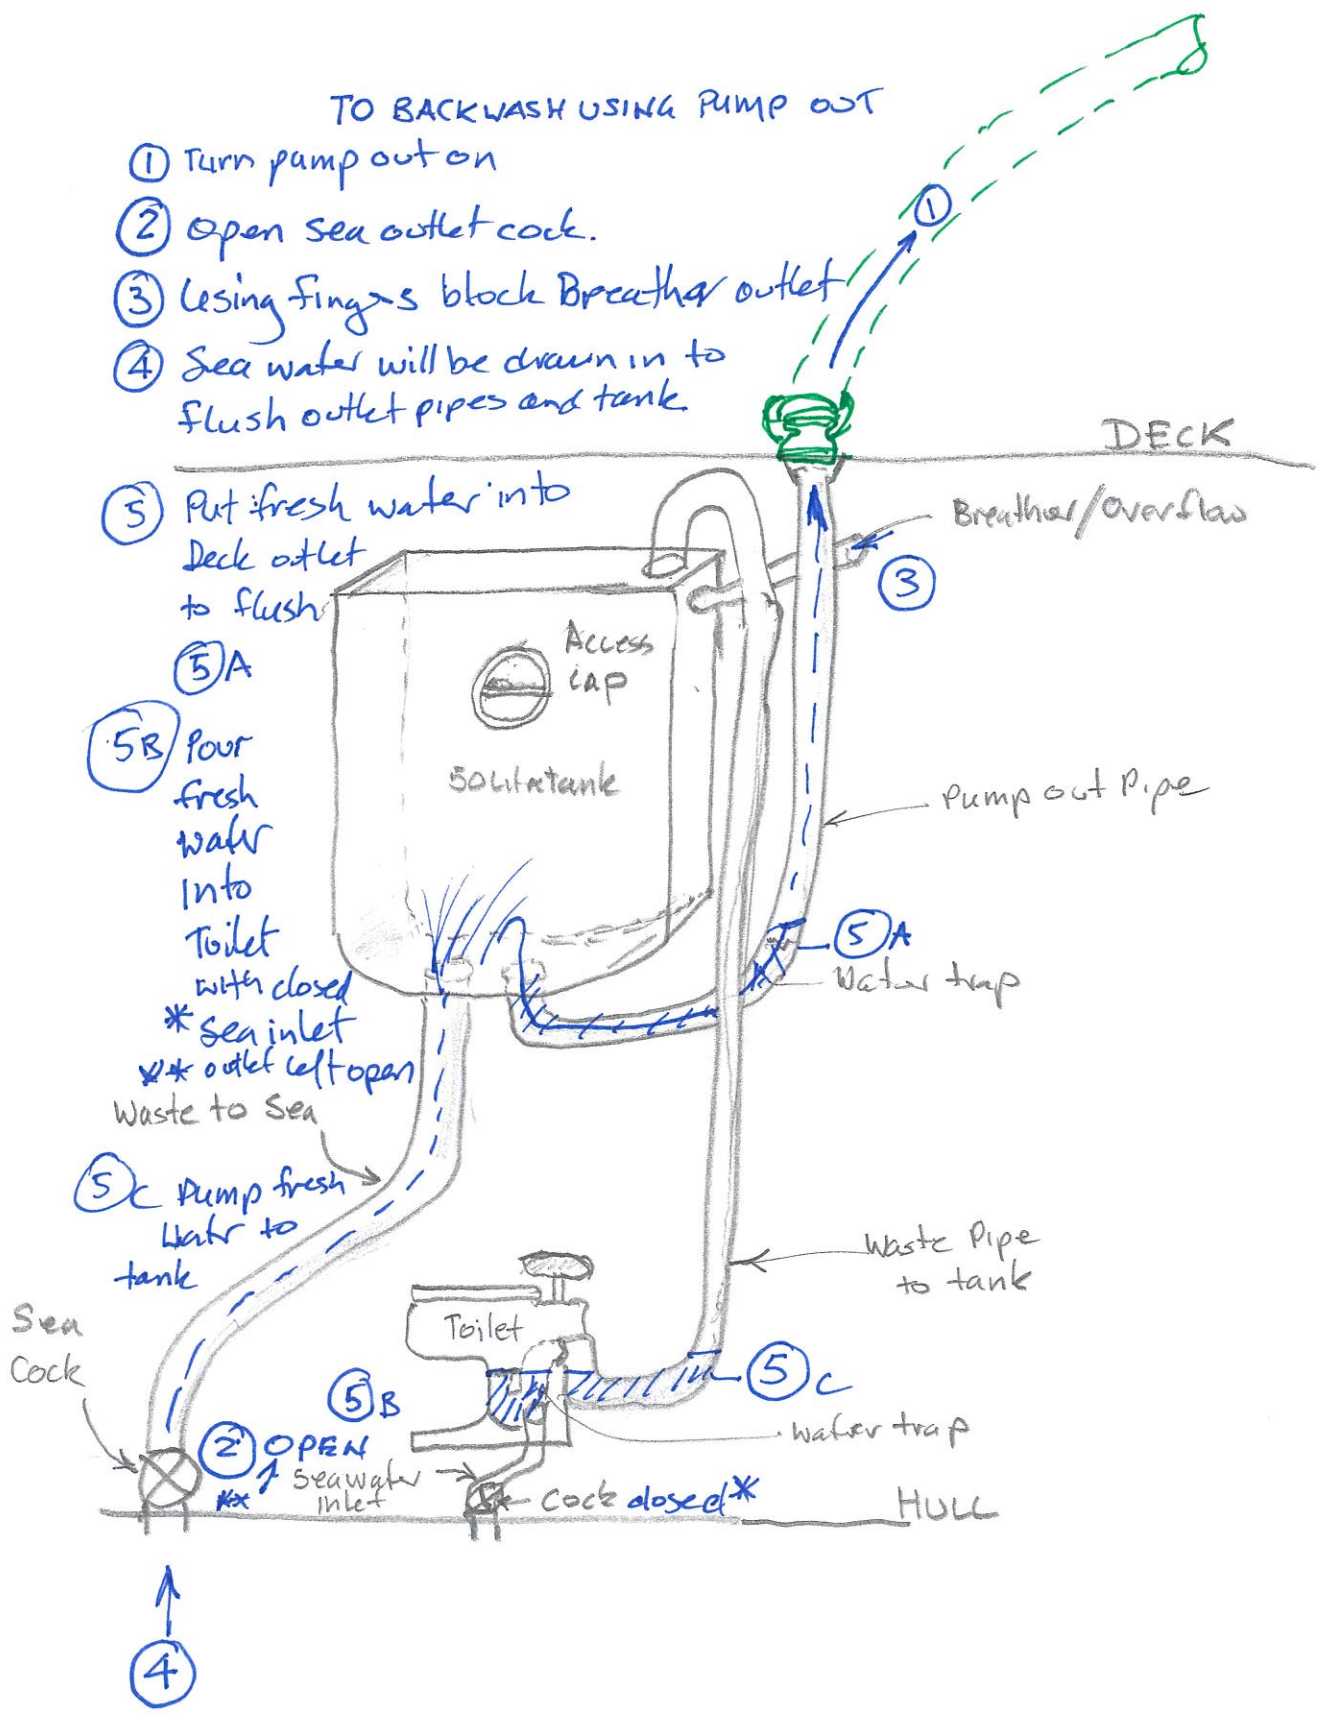 TO BACKWASH USING PUMP OUT
① Turn pump out on
② Open sea outlet cock.
③ Using fingers block Breather outlet
④ Sea water will be drawn in to
flush outlet pipes and tank.
①
DECK
⑤ Put fresh water into
Deck outlet
to flush
⑤A
Breather/Overflow
③
Access
Cap
50 Litre tank
⑤B Pour
fresh
water
Into
Toilet
with closed
* Sea inlet
** outlet left open
Pump out Pipe
⑤A
Water trap
Waste to Sea
⑤C Pump fresh
Water to
tank
Waste Pipe
to tank
Sea
Cock
Toilet
⑤B
⑤C
Water trap
② OPEN
**
Seawater
inlet
Cock closed*
HULL
④